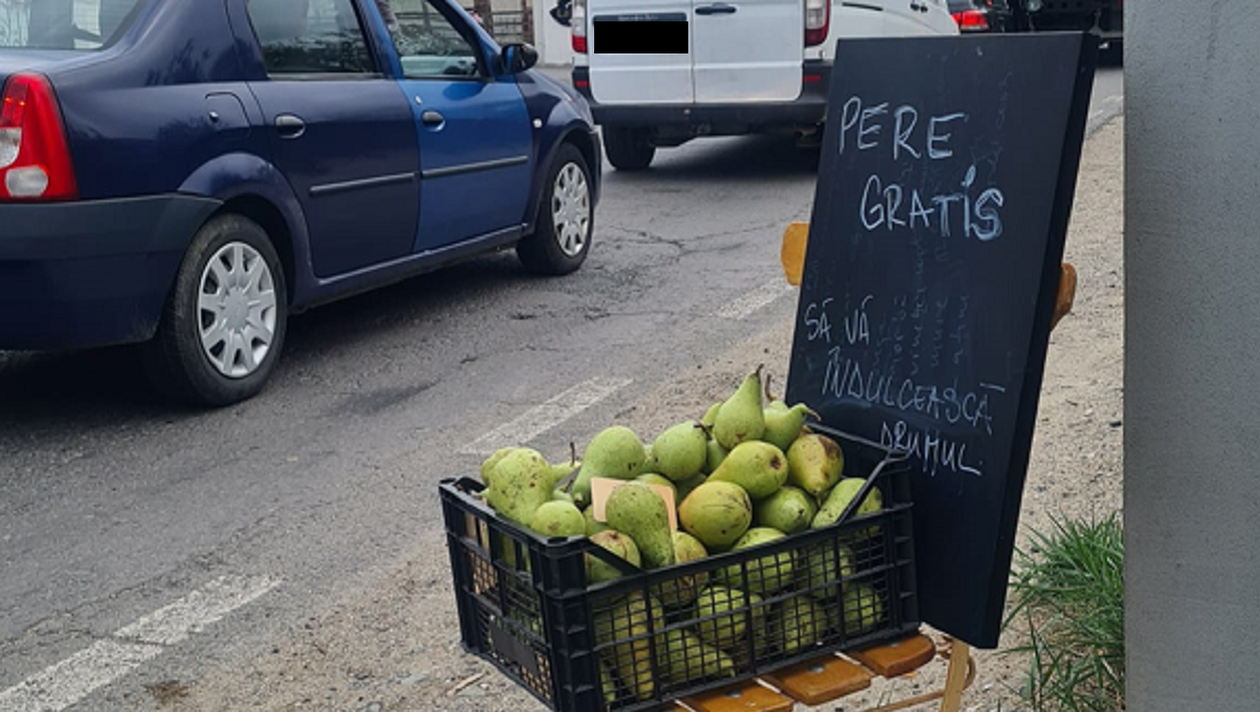 PERE
GRATIS
SĂ VĂ
ÎNDULCEASCĂ
DRUMUL